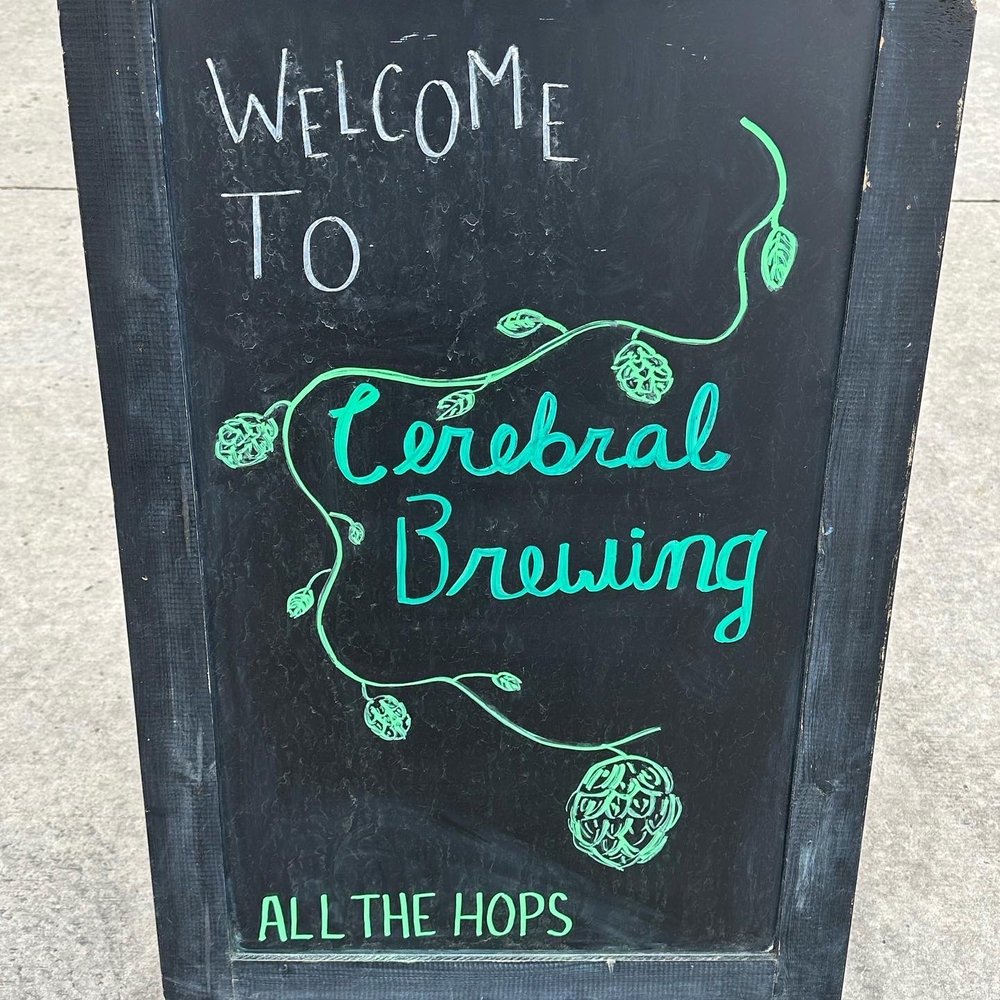 WELCOME
TO
Cerebral
Brewing
ALL THE HOPS